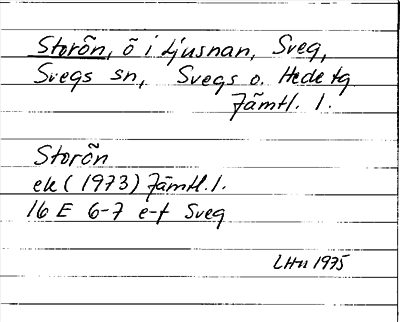 Storön, ö i Ljusnan, Sveg,
Svegs sn, Svegs o. Hede tg
Jämtl. l.
Storön
ek (1973) Jämtl. l.
16 E 6-7 e-f Sveg
LHu 1975